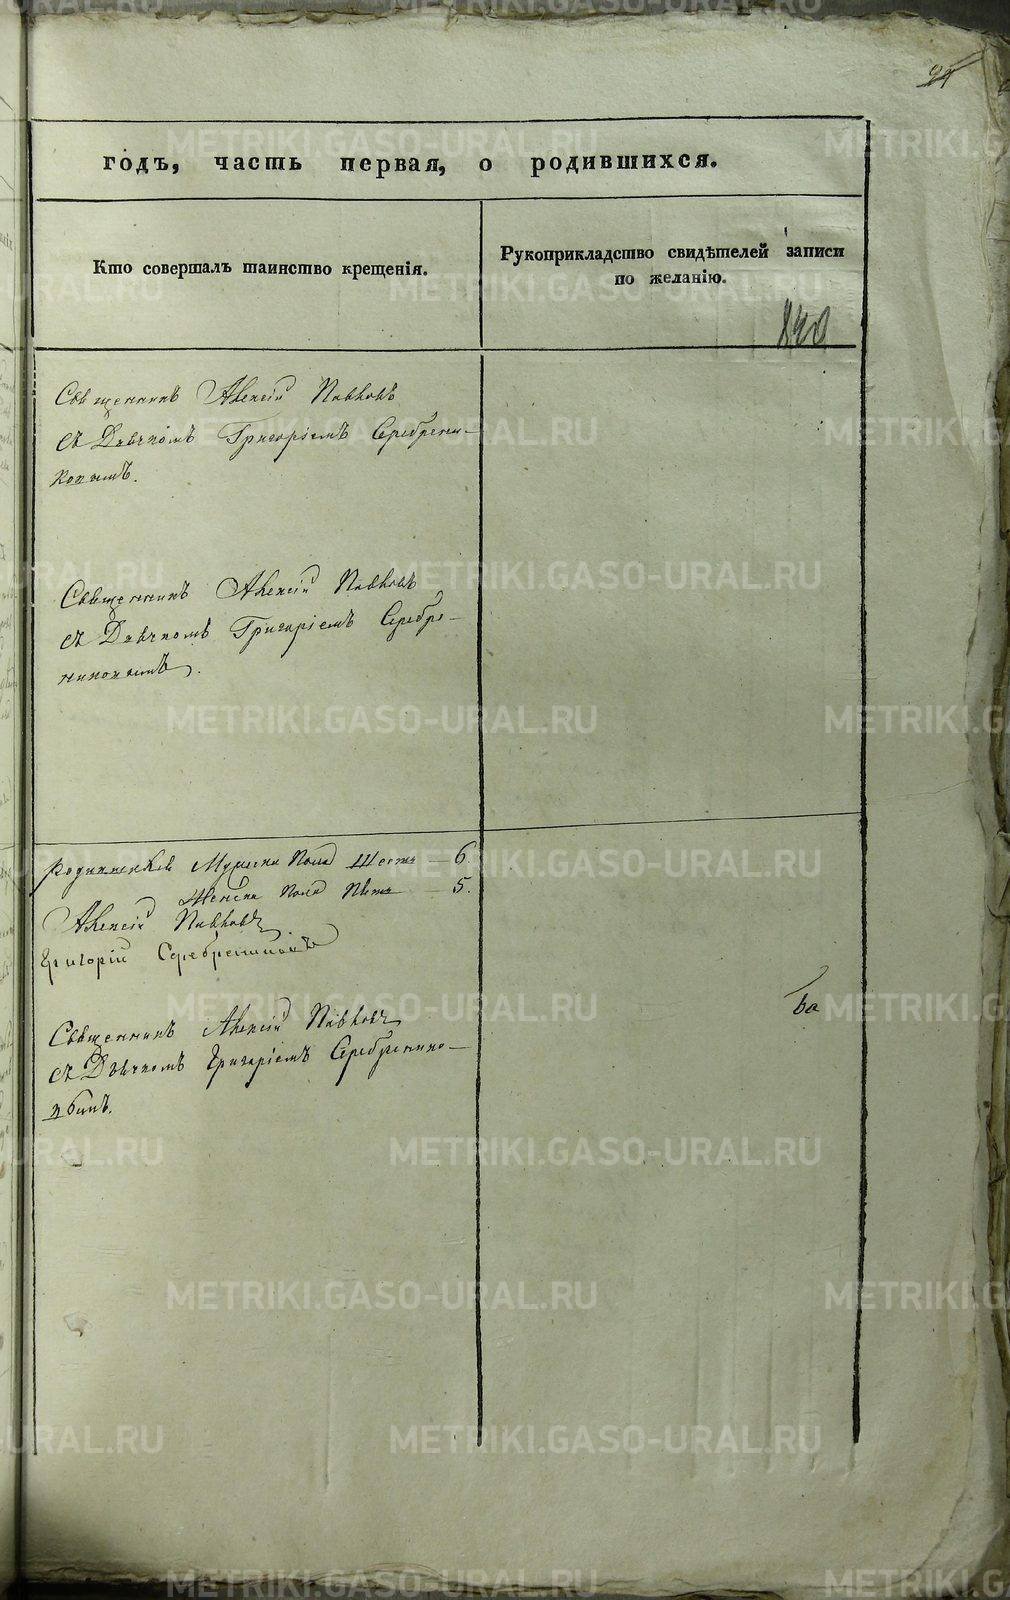 годъ, часть первая, о родившихся.
Кто совершалъ таинство крещенія.
Рукоприкладство свидѣтелей записи
по желанію.
840
Священникъ Алексій Павловъ
съ Дьячкомъ Григоріемъ Серебрени-
ковымъ.
Священникъ Алексій Павловъ
съ Дьячкомъ Григоріемъ Серебре-
никовымъ.
Мужска Пола Шесть — 6.
Женска Пола Пять — 5.
Алексій Павловъ
Григорій
Священникъ Алексій Павловъ
съ Дьячкомъ Григоріемъ Серебренико-
METRIKI.GASO-URAL.RU